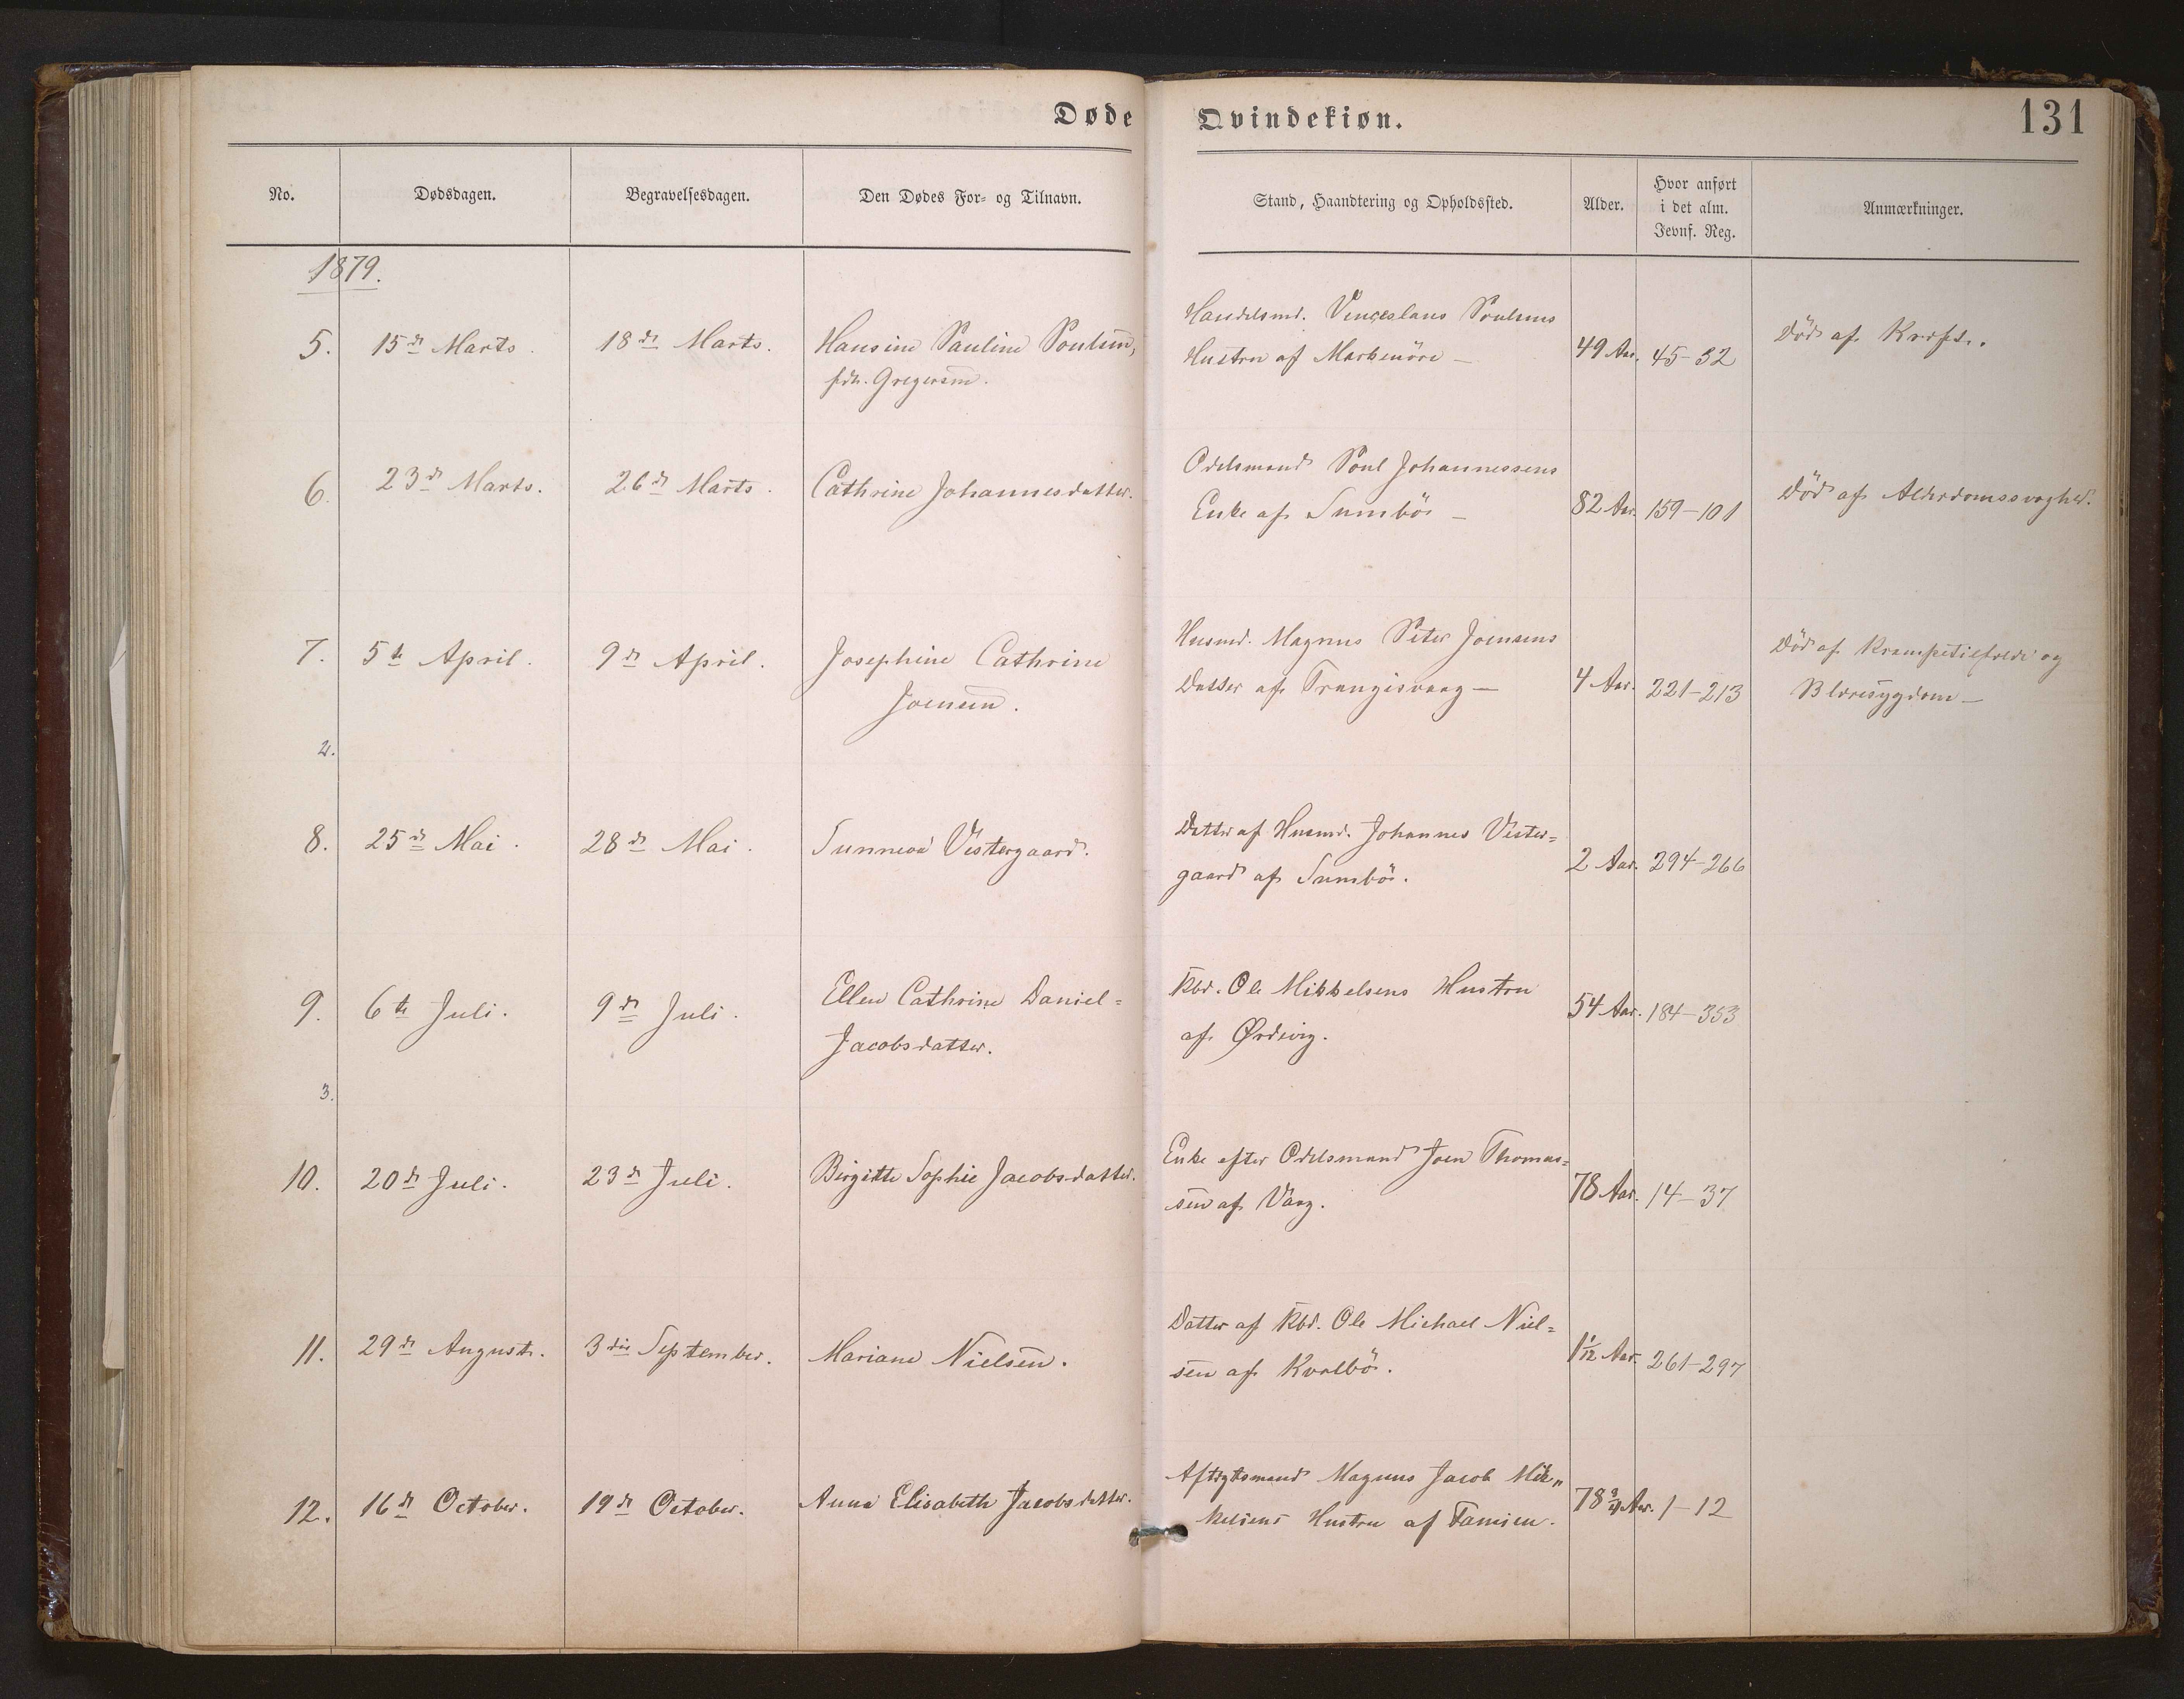 Døde
Qvindekiøn.
131
No.
Dødsdagen.
Begravelsesdagen.
Den Dødes For- og Tilnavn.
Stand, Haandtering og Opholdssted.
Alder.
Hvor anført
i det alm.
Jevnf. Reg.
Anmærkninger.
1879.
5. 15de Marts. 18de Marts. Hansine Pauline Poulsen,
fdt. Gregersen.
Handelsmd. Venceslaus Poulsens
Hustru af Marknöre — 49 Aar. 45-32 Död af Kræft.
6. 23de Marts. 26de Marts. Cathrine Johannesdatter.
Odelsmand Poul Johannessens
Enke af Sumbö — 82 Aar. 159-101 Död af Alderdomssvaghed.
7. 5te April. 9de April. Josephine Cathrine
Joensen.
Husmd. Magnus Peter Joensens
Datter af Trangisvaag — 4 Aar. 221-213 Död af Krampetilfælde og
Blæresygdom —
2.
8. 25de Mai. 28de Mai. Sunneva Vestergaard.
Datter af Husmd. Johannes Vester=
gaard af Sumbö. 2 Aar. 294-266
9. 6te Juli. 9de Juli. Ellen Cathrine Daniel=
Jacobsdatter.
Kbd. Ole Mikkelsens Hustru
af Ørdevig. 54 Aar. 184-353
3.
10. 20de Juli. 23de Juli. Birgitte Sophie Jacobsdatter.
Enke efter Odelsmand Joen Thomas=
sen af Vaag. 78 Aar. 14-37
11. 29de August. 3die September. Mariane Nielsen.
Datter af Kbd. Ole Michael Niel=
sen af Kvalbö. 1 1/12 Aar. 261-297
12. 16de October. 19de October. Anna Elisabeth Jacobsdatter.
Aftægtsmand Magnus Jacob Mik„
kelsens Hustru af Famien. 78 3/4 Aar. 1-12